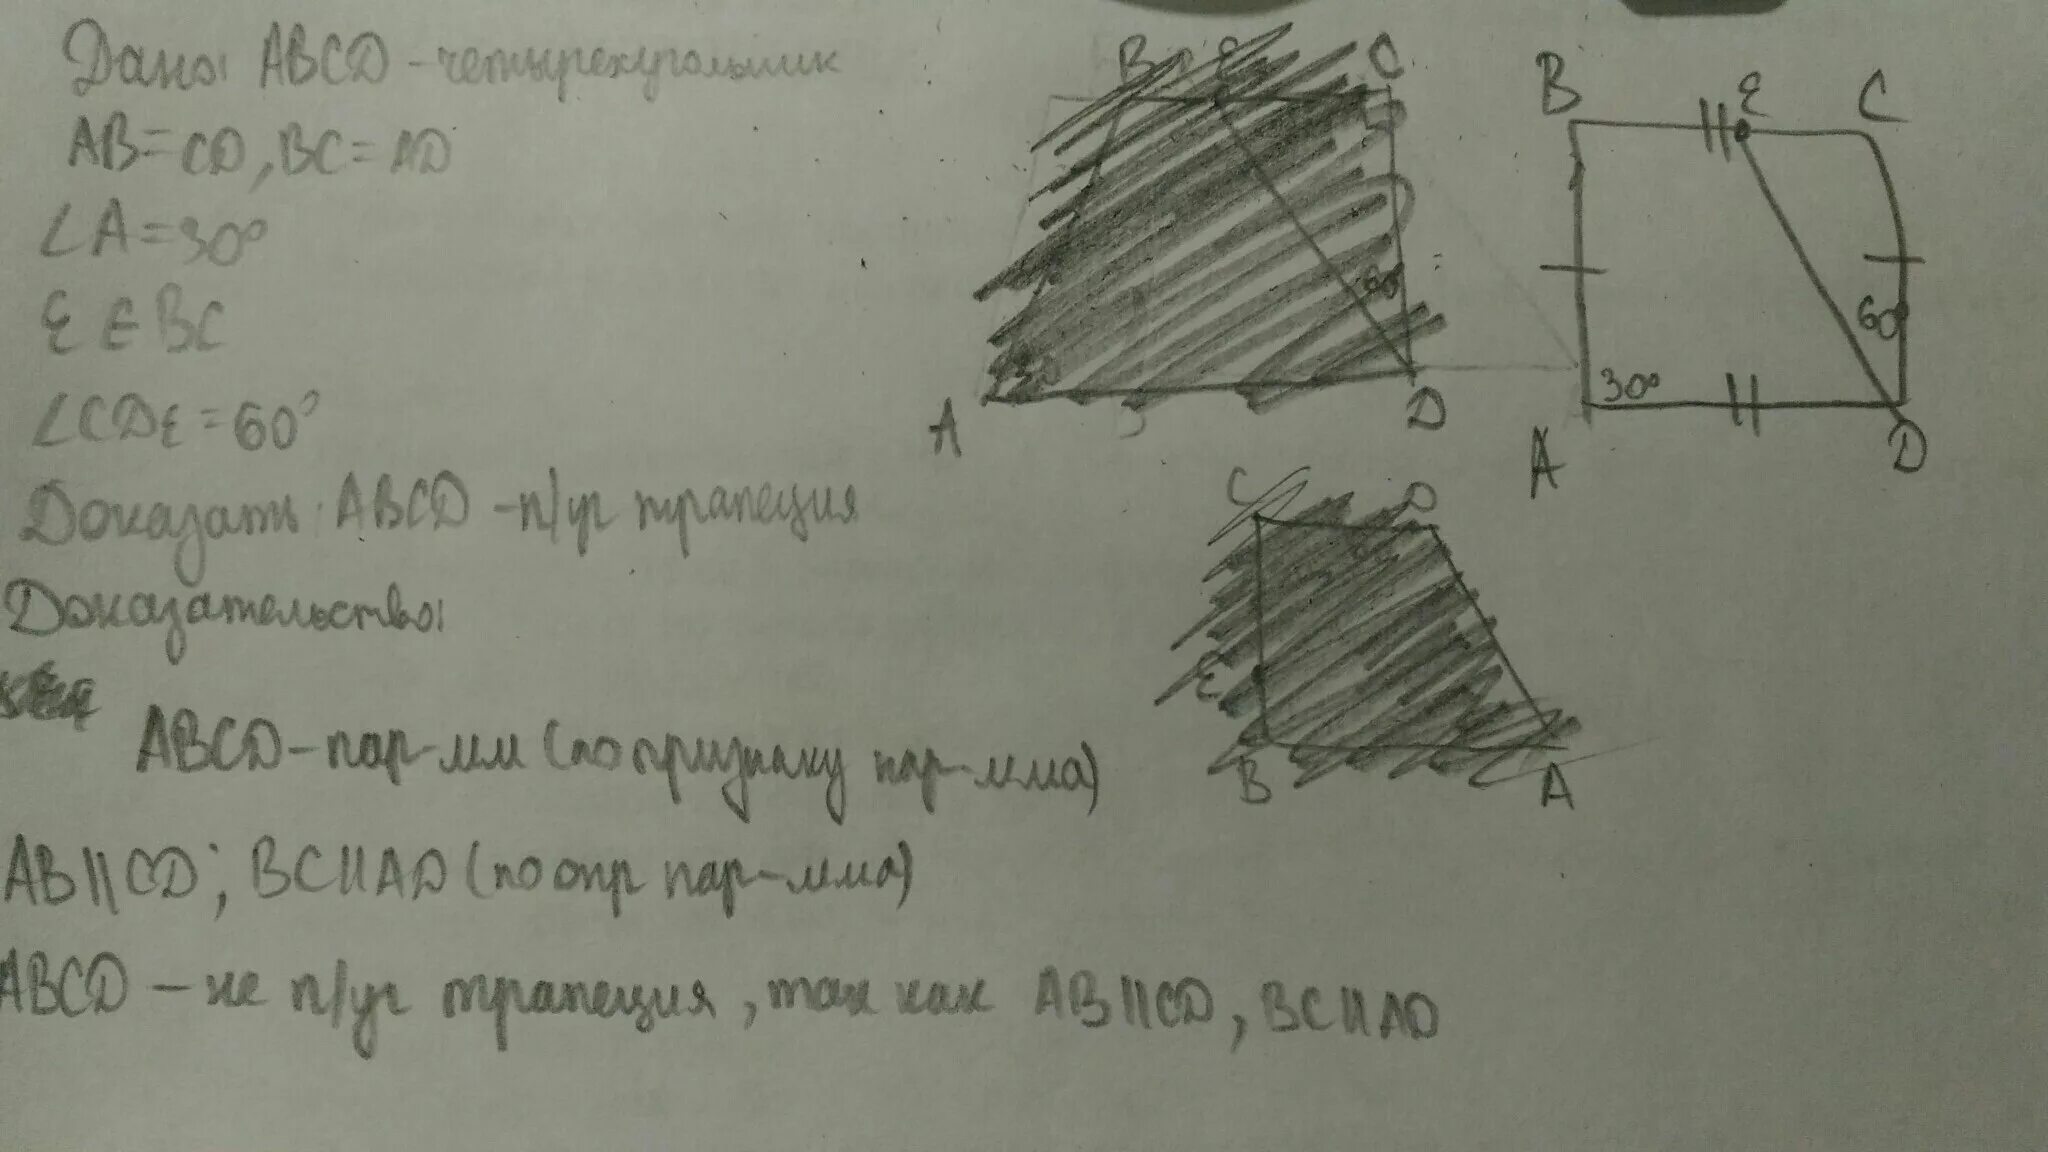 Дано: ABCD - четырехугольник
AB = CD, BC = AD
∠A = 30°
E ∈ BC
∠CDE = 60°
Доказать: ABCD - п/уг трапеция
Доказательство:
ABCD - пар-мм (по признаку пар-мма)
AB || CD; BC || AD (по опр пар-мма)
ABCD - не п/уг трапеция, так как AB || CD, BC || AD
B E C
60°
A D
B E C
60°
30°
A D
C D
E
B A